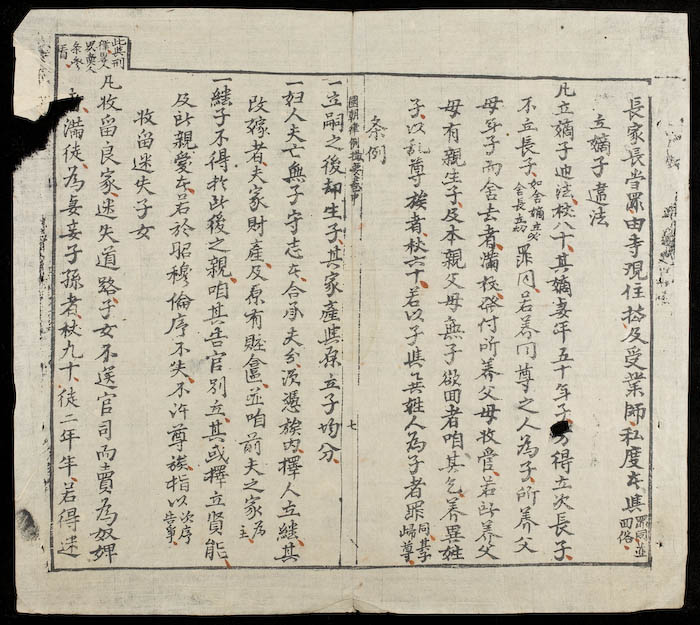 長家長当罪由寺現住持及受業師私度者與罪同並囬俗
立嫡子違法
凡立嫡子违法杖八十其嫡妻年五十年子方得立次長子
不立長子如舍嫡立次舍長立幼罪同若養同尊之人為子所養父
母年子而舍去者滿杖發付所養父母收管若所養父
母有親生子及本親父母無子欲囬者咱其乞養異姓
子以乱尊族者杖六十若以子與異姓人為子者罪同其子歸尊
条例
國朝律例撮要卷中 七
一立嗣之後却生子其家產與原立子均分
一妇人夫亡無子守志者合承夫分湏憑族内擇人立繼其
改嫁者夫家財產及原有賍奩並咱前夫之家為主
一繼子不得於此後之親咱其告官别立其或擇立賢能
及此親愛者若於昭穆倫序不失不許尊族指以次序告爭
收留迷失子女
凡收留良家迷失道路子女不送官司而賣為奴婢
滿徒為妻妾子孫者杖九十徒二年半若得迷
此與刑